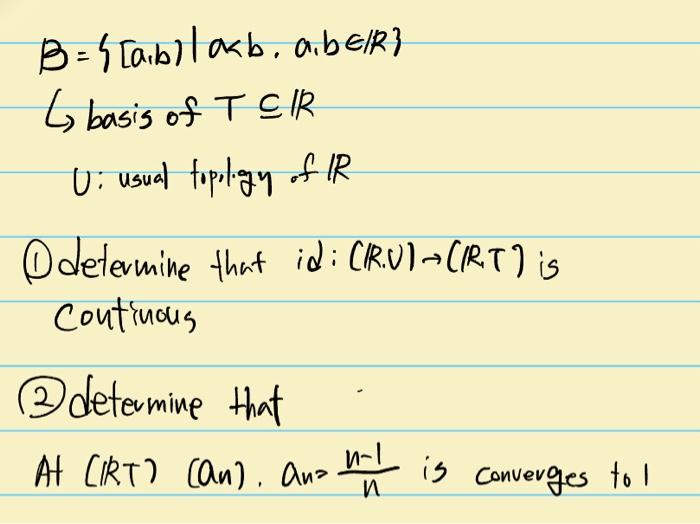 B = { [a,b) | a<b. a,b∈ℝ }
↳ basis of T ⊆ ℝ
U: usual topology of ℝ
① determine that id: (ℝ.U) → (ℝ.T) is
continuous
② determine that
At (ℝT) (an). an = n-1/n is converges to 1